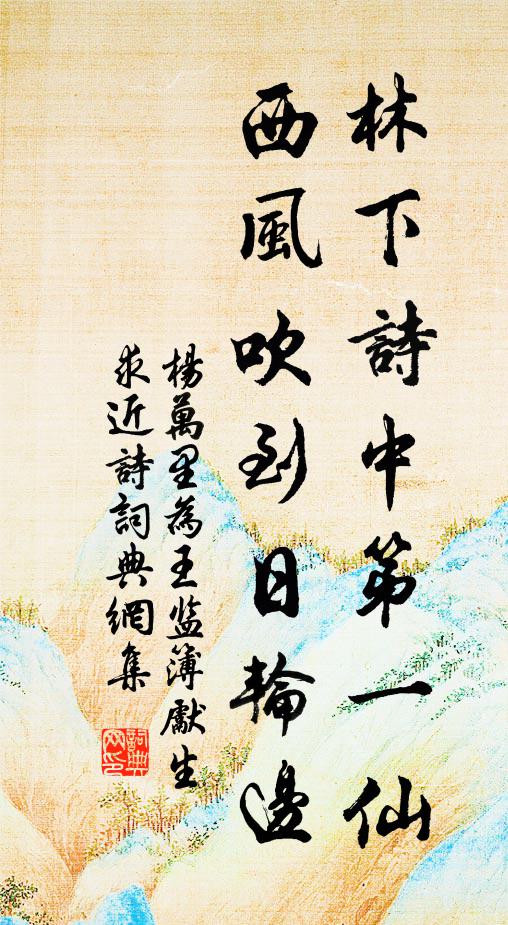 林下詩中第一仙
西風吹到日輪邊
楊萬里為王監簿獻生
求近詩詞典網集
詞典網印